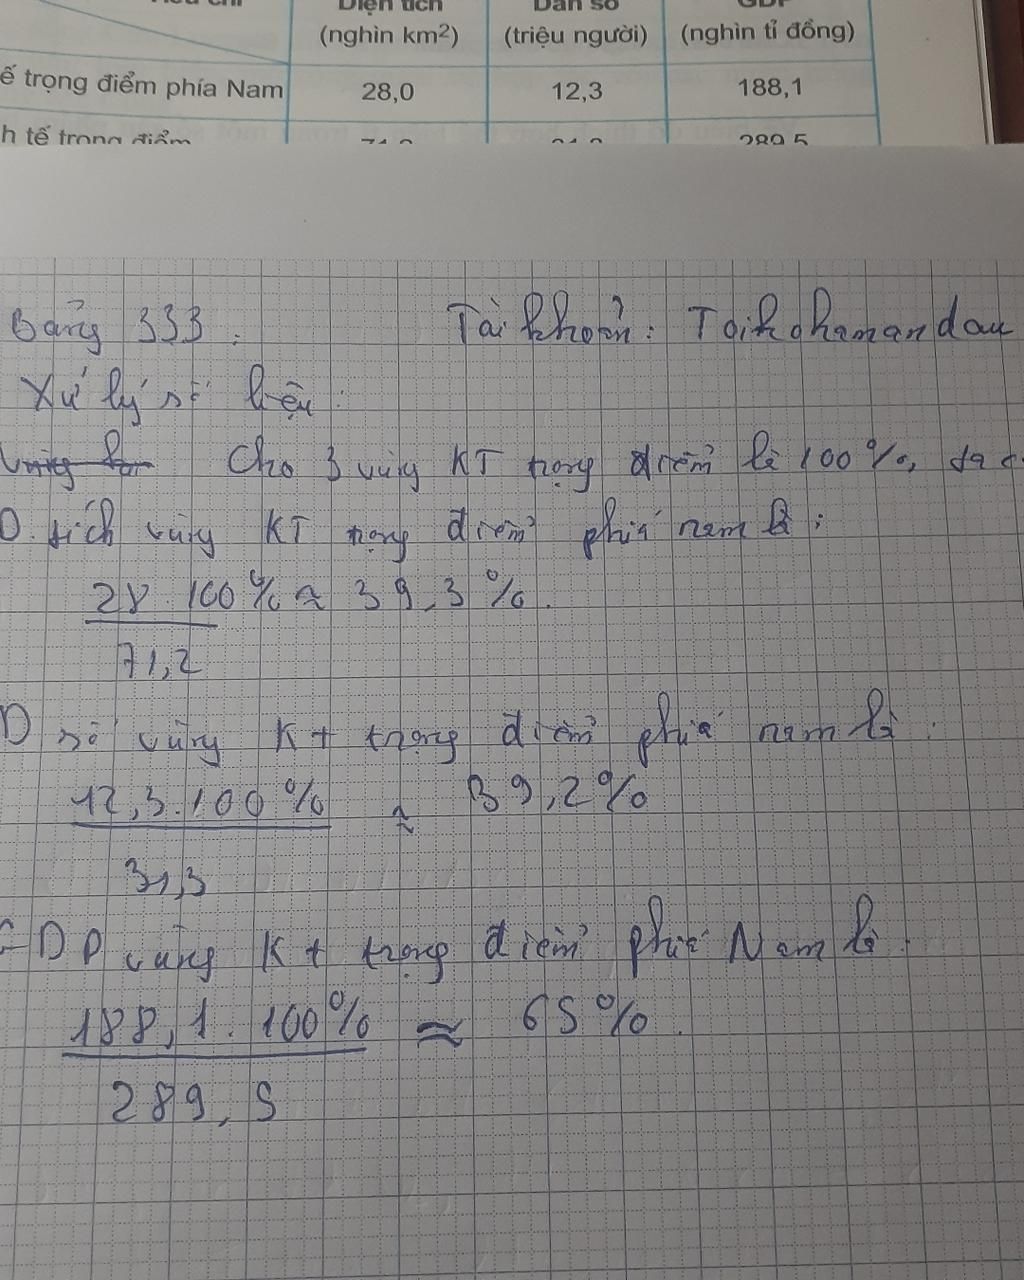 Diện tích Dân số GDP
(nghìn km²) (triệu người) (nghìn tỉ đồng)
ế trọng điểm phía Nam 28,0 12,3 188,1
h tế trọng điểm 289,5
Bảng 333: Tài khoản: Toikohamandau
Xử lý số liệu:
Cho 3 vùng KT trọng điểm là 100%, ta c
D. tích vùng KT trọng điểm phía nam là:
28.100% ≈ 39,3%.
71,2
D số vùng Kt trọng điểm phía nam là:
12,3.100% ≈ 39,2%
31,3
GDP vùng Kt trọng điểm phía Nam là:
188,1.100% ≈ 65%.
289,5